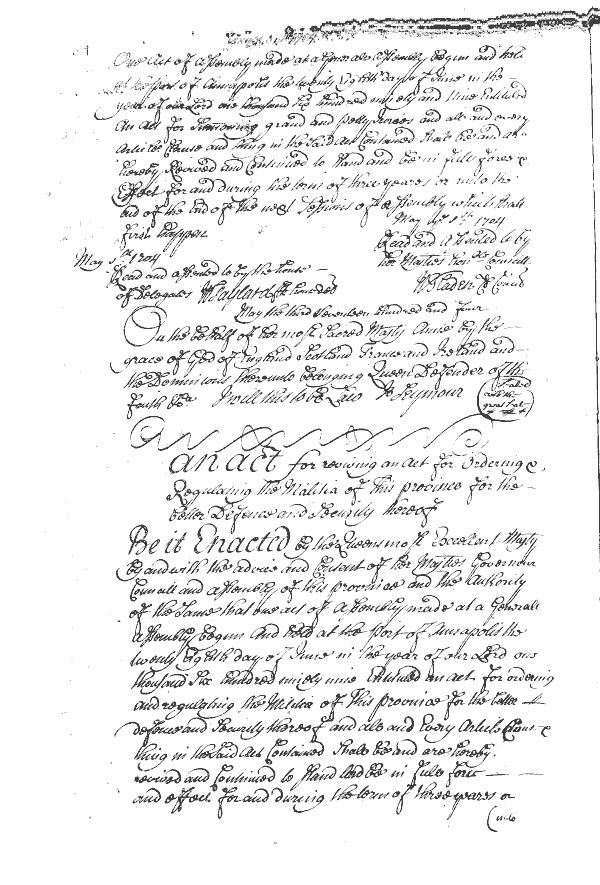 One Act of Assembly made at a Generall Assembly begun and held
at the port of Annapolis the twenty Eighth day of June in the
year of our Lord one thousand six hundred ninety and Nine Entituled
An Act for Summoning grand and petty Jurors and all and every
Article Clause and thing in the said Act Contained shall be and are
hereby Revived and Continued to stand and be in full force &
Effect for and during the term of three yeares or unto the
end of the next Sessions of Assembly which shall
first happen
May 3d 1704
Read and assented to by
her Majtys honble Councill
W Bladen Cl Concil
May 3d 1704
Read and assented to by the house
of Delegates W Taylard Cl
May the third Seventeen hundred and four
On the behalf of her most Sacred Majty Anne by the
grace of God of England Scotland France and Ireland and
the Dominions thereunto belonging Queen Defender of the
Faith &c I will this to be Law Jo Seymour
great seal
An Act for reviving an Act for Ordering &
Regulating the Militia of this province for the
better Defence and Security thereof
Be it Enacted by the Queens most Excellent Majty
by and with the advice and Consent of her Majtys Governour
Councill and Assembly of this province and the Authority
of the same that one act of Assembly made at a Generall
Assembly begun and held at the Port of Annapolis the
twenty Eighth day of June in the year of our Lord one
thousand six hundred ninety nine Entituled an Act for ordering
and regulating the Militia of this province for the better
defence and Security thereof and all and Every Article Clause &
thing in the said Act Contained shall be and are hereby
revived and continued to stand and be in full force
and effect for and during the term of three yeares or
unto